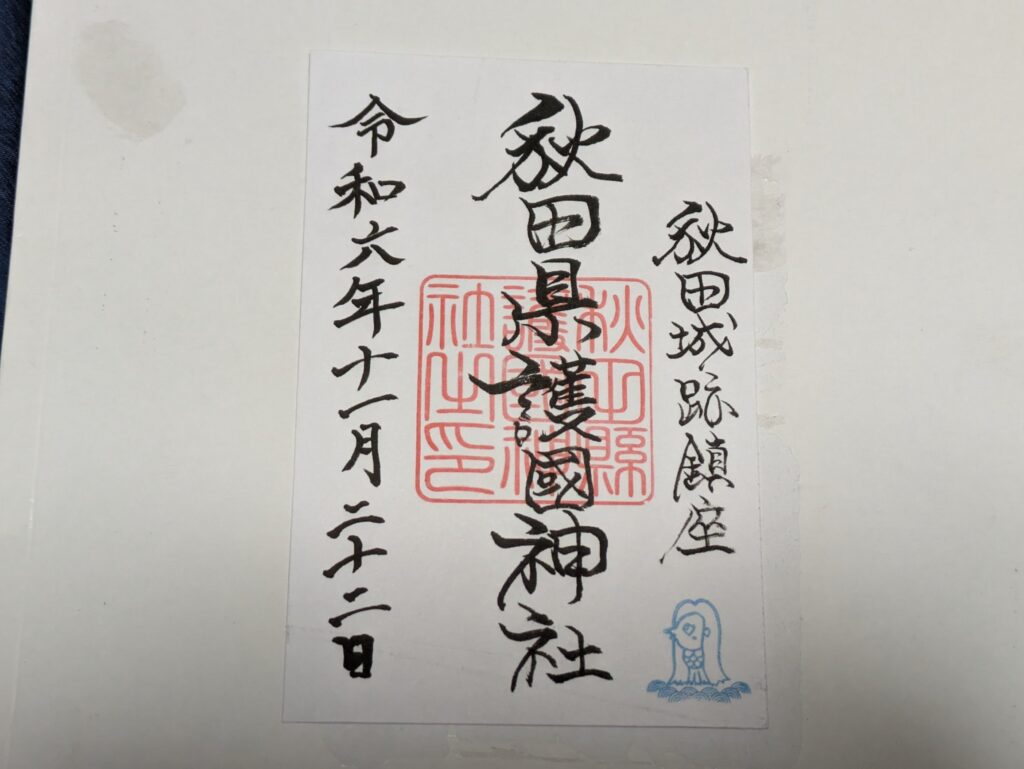 秋田城跡鎮座
秋田県護國神社
秋田縣護國神社之印
令和六年十一月二十二日